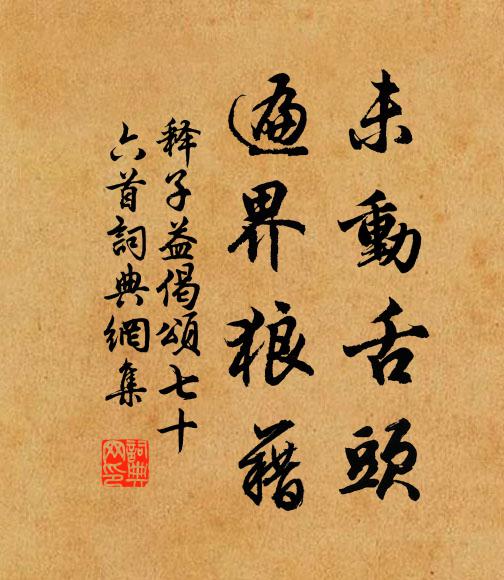 未動舌頭
遍界狼藉
释子益偈頌七十
六首詞典網集
詞典網印